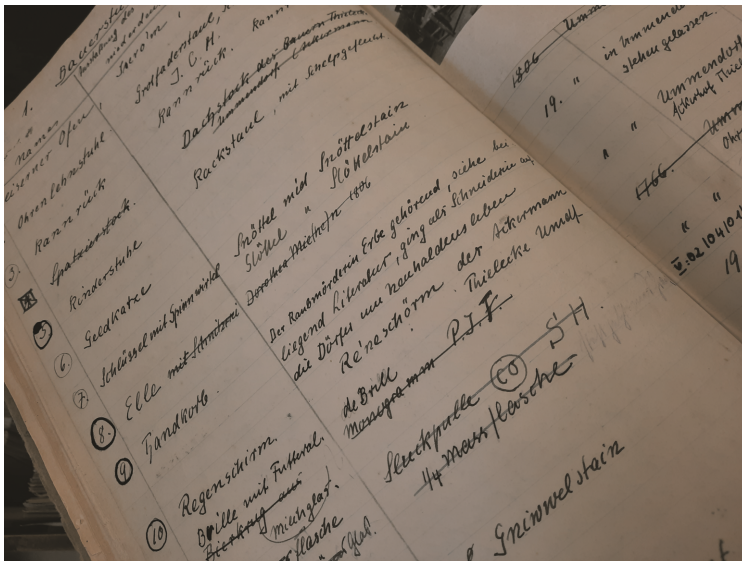 1. Bauerstu
Namas
eiserner Ofen,
Ohrenlehnstuhl
Kannrück
Spatzierstock.
Kinderstuhl
Geldkatze
Schlüssel mit Spinnwirkel
Elle mit Schnitzerei
Tandkorb.
Regenschirm.
Brille mit Futteral.
Bierkrug aus
Milchglas.
flasche
glas.
5.
6.
7.
8.
9
10
Grotfaderstaul,
J. C. H.
Kannrück.
Dachstock des Bauern Thielecke
Ummendorf
Rackstaul, mit Schelpgeflecht.
Snöttel mid Snöttelstain
Slöttel " Slöttelstain
Dorothea Miethe/n 1806
Der Raubmörderin Erbe gehörend, siehe bei
liegend Literatur, ging als Schneiderin auf
die Dörfer um neuhaldensleben
Réneschörm der Ackermann
Thielecke Umdf.
de Brill
Monogramm P.J.F.
Sluckpulle CO SH
1/4 Mass flasche
Gniwwelstain
1806
19. " in Ummendorf
stehen gelassen.
" " Ummendorf
Ackerhof Thiel
1766.
" "
V:02104101
19